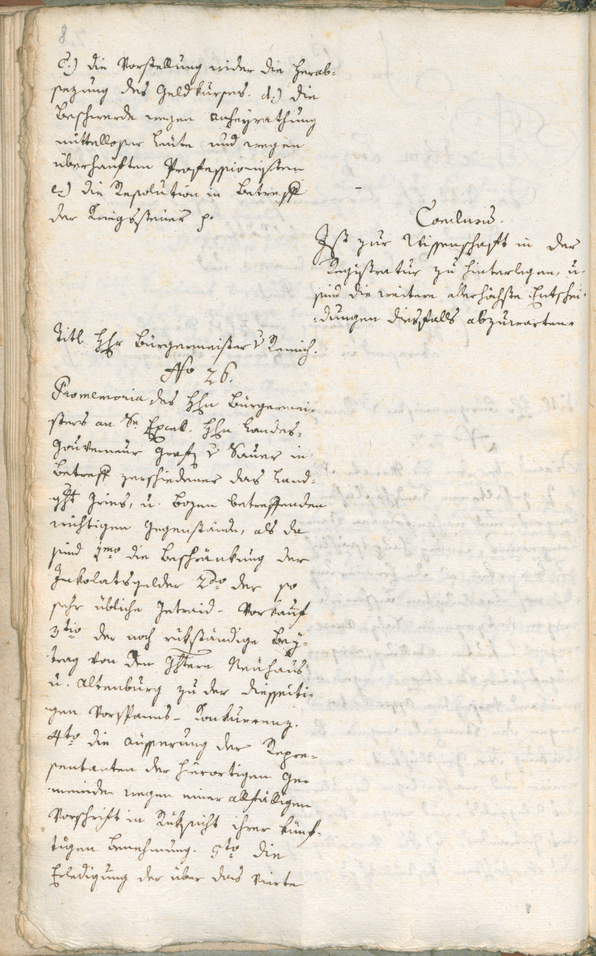 8
c.) die Vorstellung wider die Herab-
sezung des Geldkurses. d.) die
Beschwerde wegen Anheyrathung
mittelloser Leute und wegen
überhauften Professionisten
e.) die Resolution in Betreff
der Kriegssteuer p.
Conclusus.
Ist zur Wissenschaft in der
Registratur zu hinterlegen, u.
sind die weitere allerhöchste Entschei-
dungen diesfalls abzuwarten.
Titl. Hhr Bürgermeister v
No 26.
Promemoria des Hhn Bürgermei-
sters an Se Excell. Hhn Landes-
Gouverneur Grafen v Sauer in
Betreff verschiedener das Land-
ght Gries, u. Bozen betreffenden
wichtigen Gegenstände, als da
sind 1mo die Beschränkung der
Inkolatsgelder 2do der so
sehr übliche Getreid-Vorkauf
3tio der noch rükständige Bey-
trag von dem Neuhaus
u. Altenburg zu der diesseiti-
gen Vorspanns-Konkurrenz.
4to die Äusserung der Reprae-
sentanten der hierortigen Ge-
meinden wegen einer allfälligen
Vorschrift in Rüksicht ihrer künf-
tigen Benehmung. 5to die
Erledigung der über das vierte